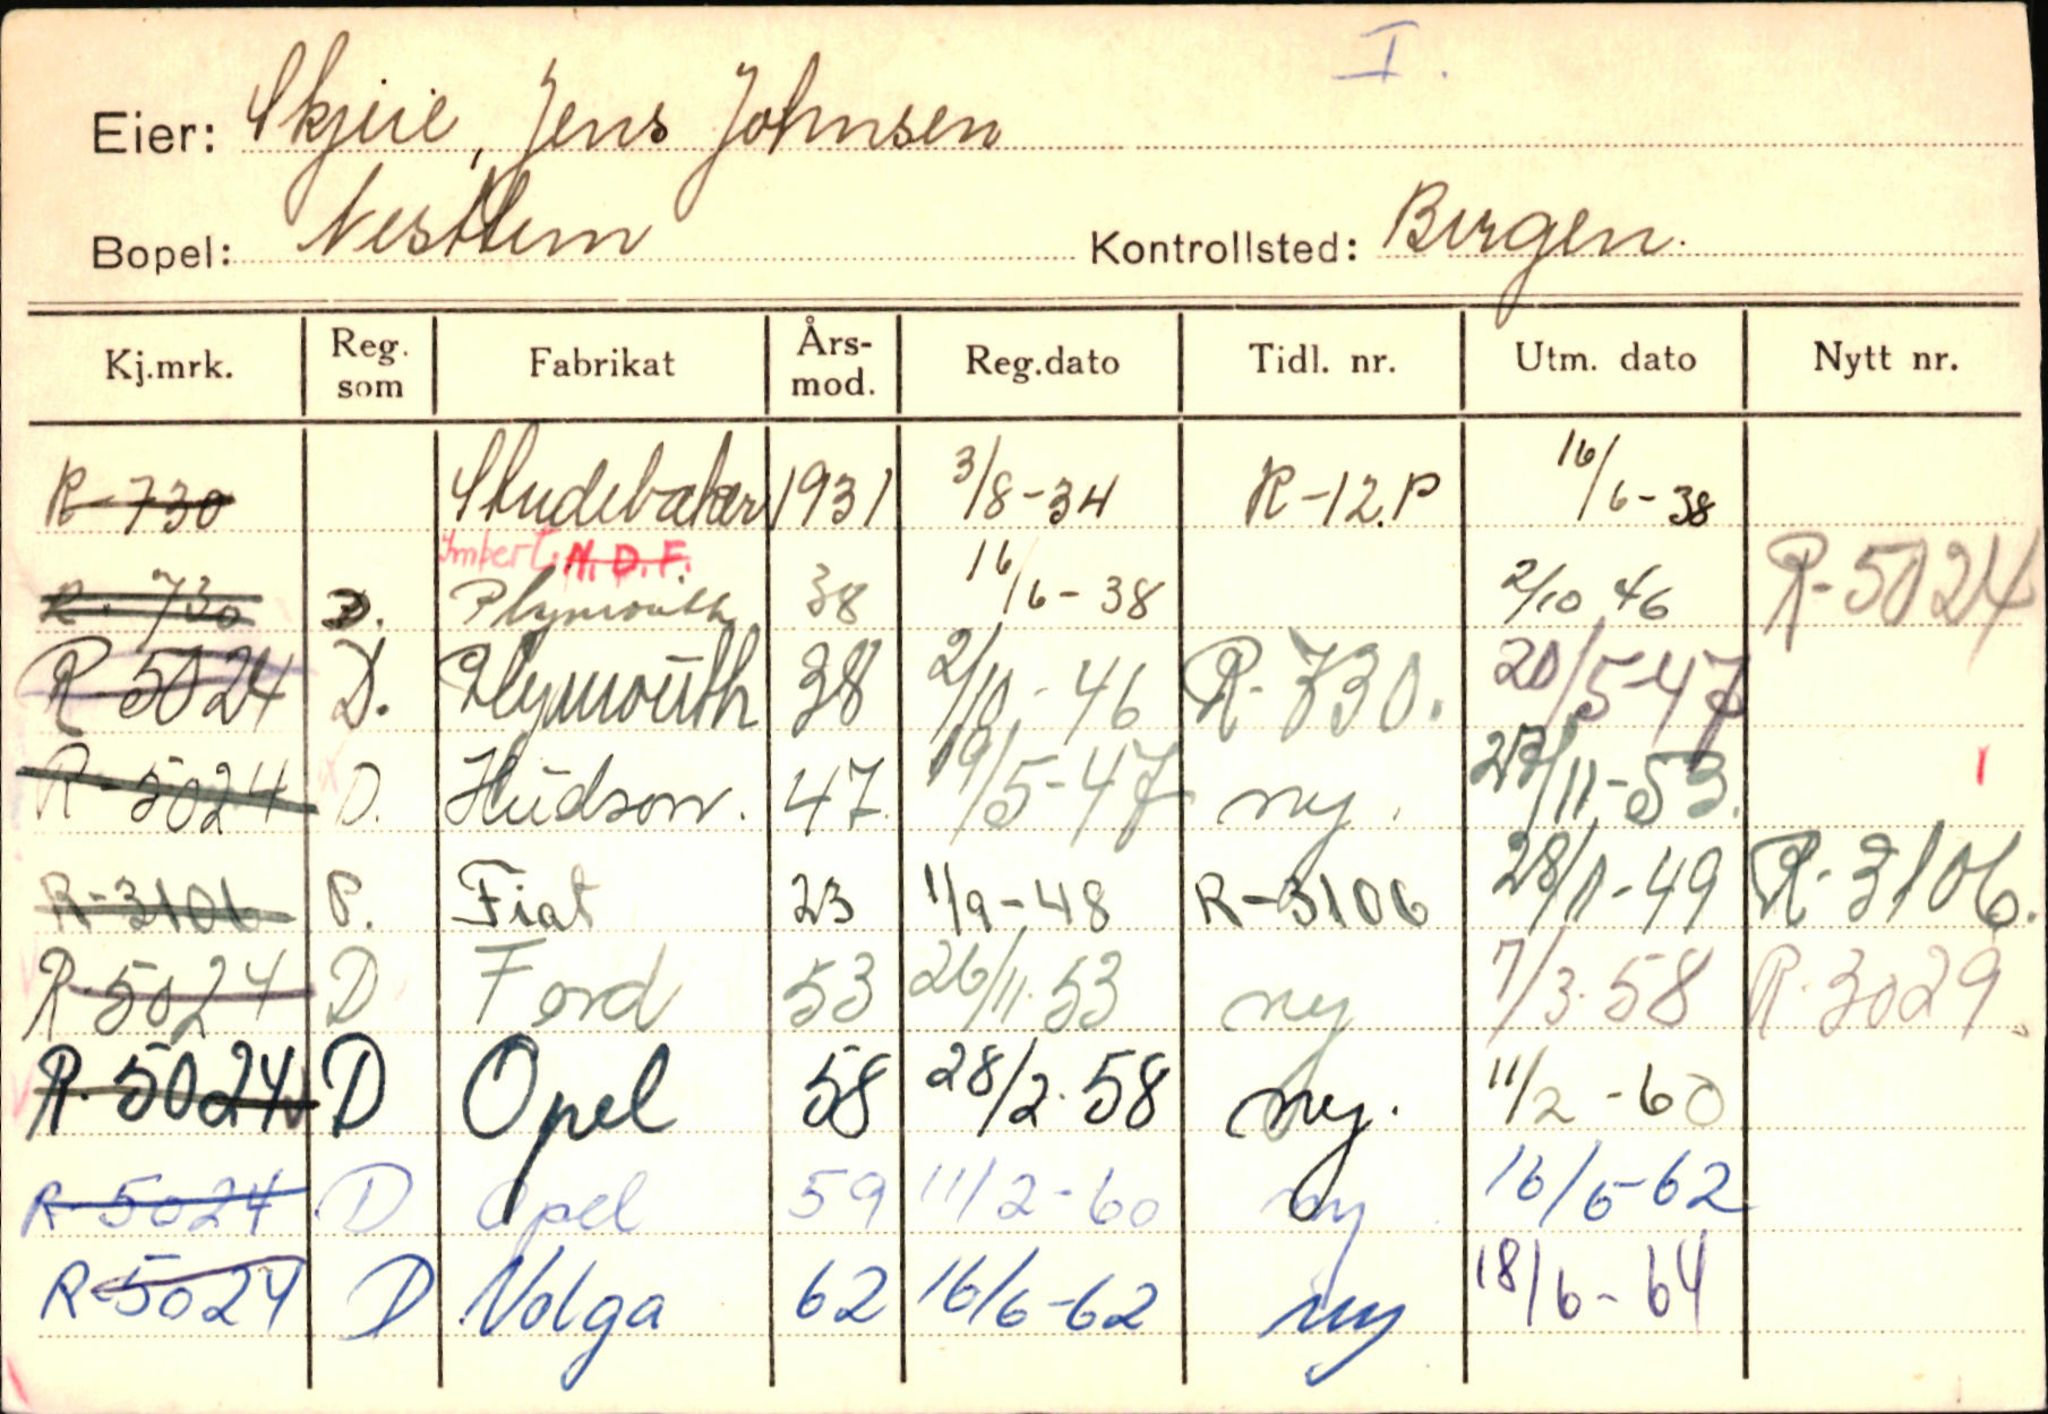 I.
Eier: Skjeie, Jens Johnsen
Bopel: Nesttun Kontrollsted: Bergen.
Kj.mrk. Reg. som Fabrikat Års-mod. Reg.dato Tidl. nr. Utm. dato Nytt nr.
R-730 Studebaker 1931 3/8-34 R-12.P 16/6-38
Imbert. N.D.F.
R-730 D. Plymouth 38 16/6-38 2/10 46 R-5024
R-5024 D. Plymouth 38 2/10-46 R-730. 20/5-47
R-5024 D. Hudson. 47. 19/5-47 ny. 27/11-53. 1
R-3106 P. Fiat 23 1/9-48 R-3106 28/11-49 R-3106.
R-5024 D Ford 53 26/11.53 ny 7/3.58 R-3029.
R-5024 D Opel 58 28/2.58 ny. 11/2-60
R-5024 D Opel 59 11/2-60 ny 16/6-62
R-5024 D Volga 62 16/6-62 ny 18/6-64